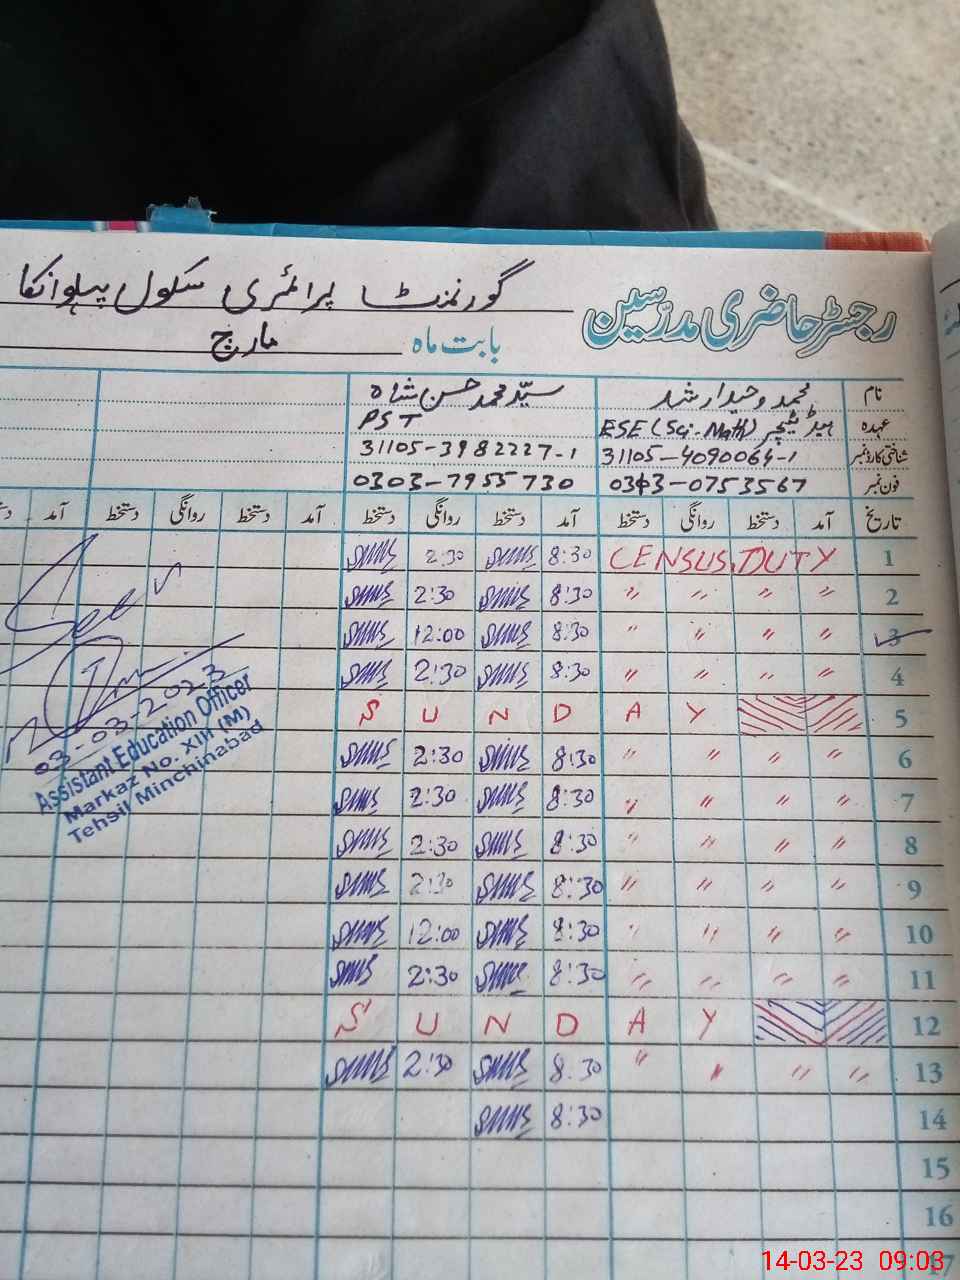 رجسٹر حاضری مدرسین گورنمنٹ پرائمری سکول پہلوانکا
بابت ماہ مارچ
نام محمد وحید ارشد سید محمد حسن شاہ
عہدہ ہیڈ ٹیچر ESE (Sci-Math) PST
شناختی کارڈ نمبر 31105-4090064-1 31105-3982227-1
فون نمبر 0343-0753567 0303-7955730
تاریخ آمد دستخط روانگی دستخط آمد دستخط روانگی دستخط آمد دستخط روانگی دستخط آمد
1 CENSUS DUTY 8:30 2:30
2 〃 〃 〃 〃 8:30 2:30
3 〃 〃 〃 〃 8:30 12:00
4 〃 〃 〃 〃 8:30 2:30
5 SUNDAY
6 〃 〃 〃 〃 8:30 2:30
7 〃 〃 〃 〃 8:30 2:30
8 〃 〃 〃 〃 8:30 2:30
9 〃 〃 〃 〃 8:30 2:30
10 〃 〃 〃 〃 8:30 12:00
11 〃 〃 〃 〃 8:30 2:30
12 SUNDAY
13 〃 〃 〃 〃 8:30 2:30
14 8:30
15
16
17
03-03-2023
Assistant Education Officer
Markaz No. XIII (M)
Tehsil Minchinabad
14-03-23 09:03